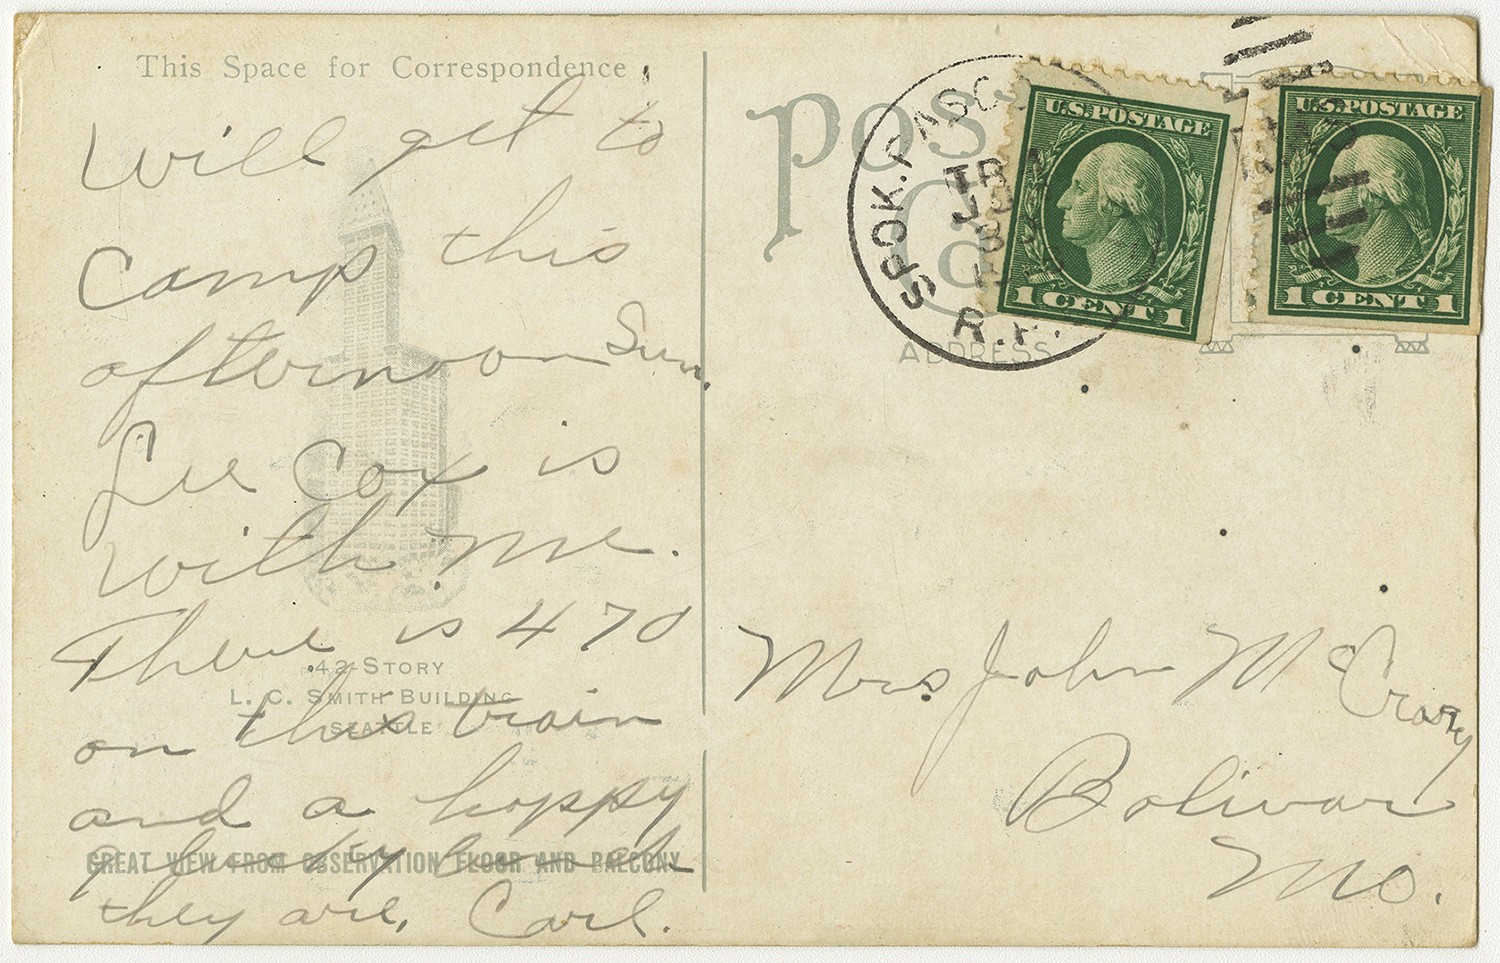 This Space for Correspondence
Will get to
camp this
afternoon Sun.
Lee Cox is
with me.
There is 470
on this train
and a happy
they are, Carl.
42-STORY
L. C. SMITH BUILDING
SEATTLE
GREAT VIEW FROM OBSERVATION FLOOR AND BALCONY
POS
Ca
ADDRESS
SPOK. PASCO
TR 1
R.P.
U.S. POSTAGE
1 CENT 1
U.S. POSTAGE
1 CENT 1
Mrs John McCrary
Bolivar
Mo.